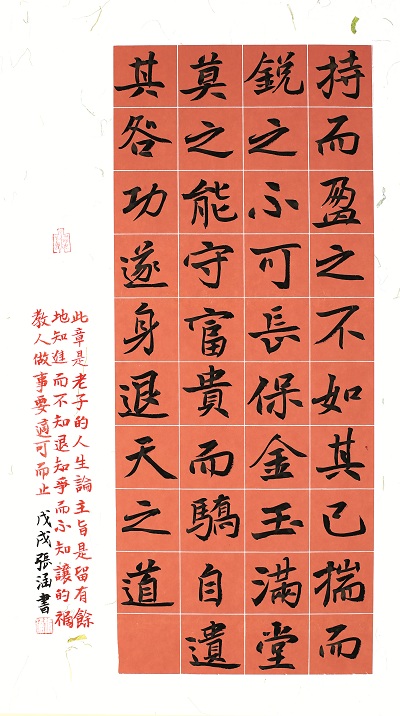 持而盈之不如其已揣而
鋭之不可長保金玉滿堂
莫之能守富貴而驕自遺
其咎功遂身退天之道
此章是老子的人生論主旨是留有餘
地知進而不知退知爭而不知讓的禍
教人做事要適可而止 戊戌張涵書